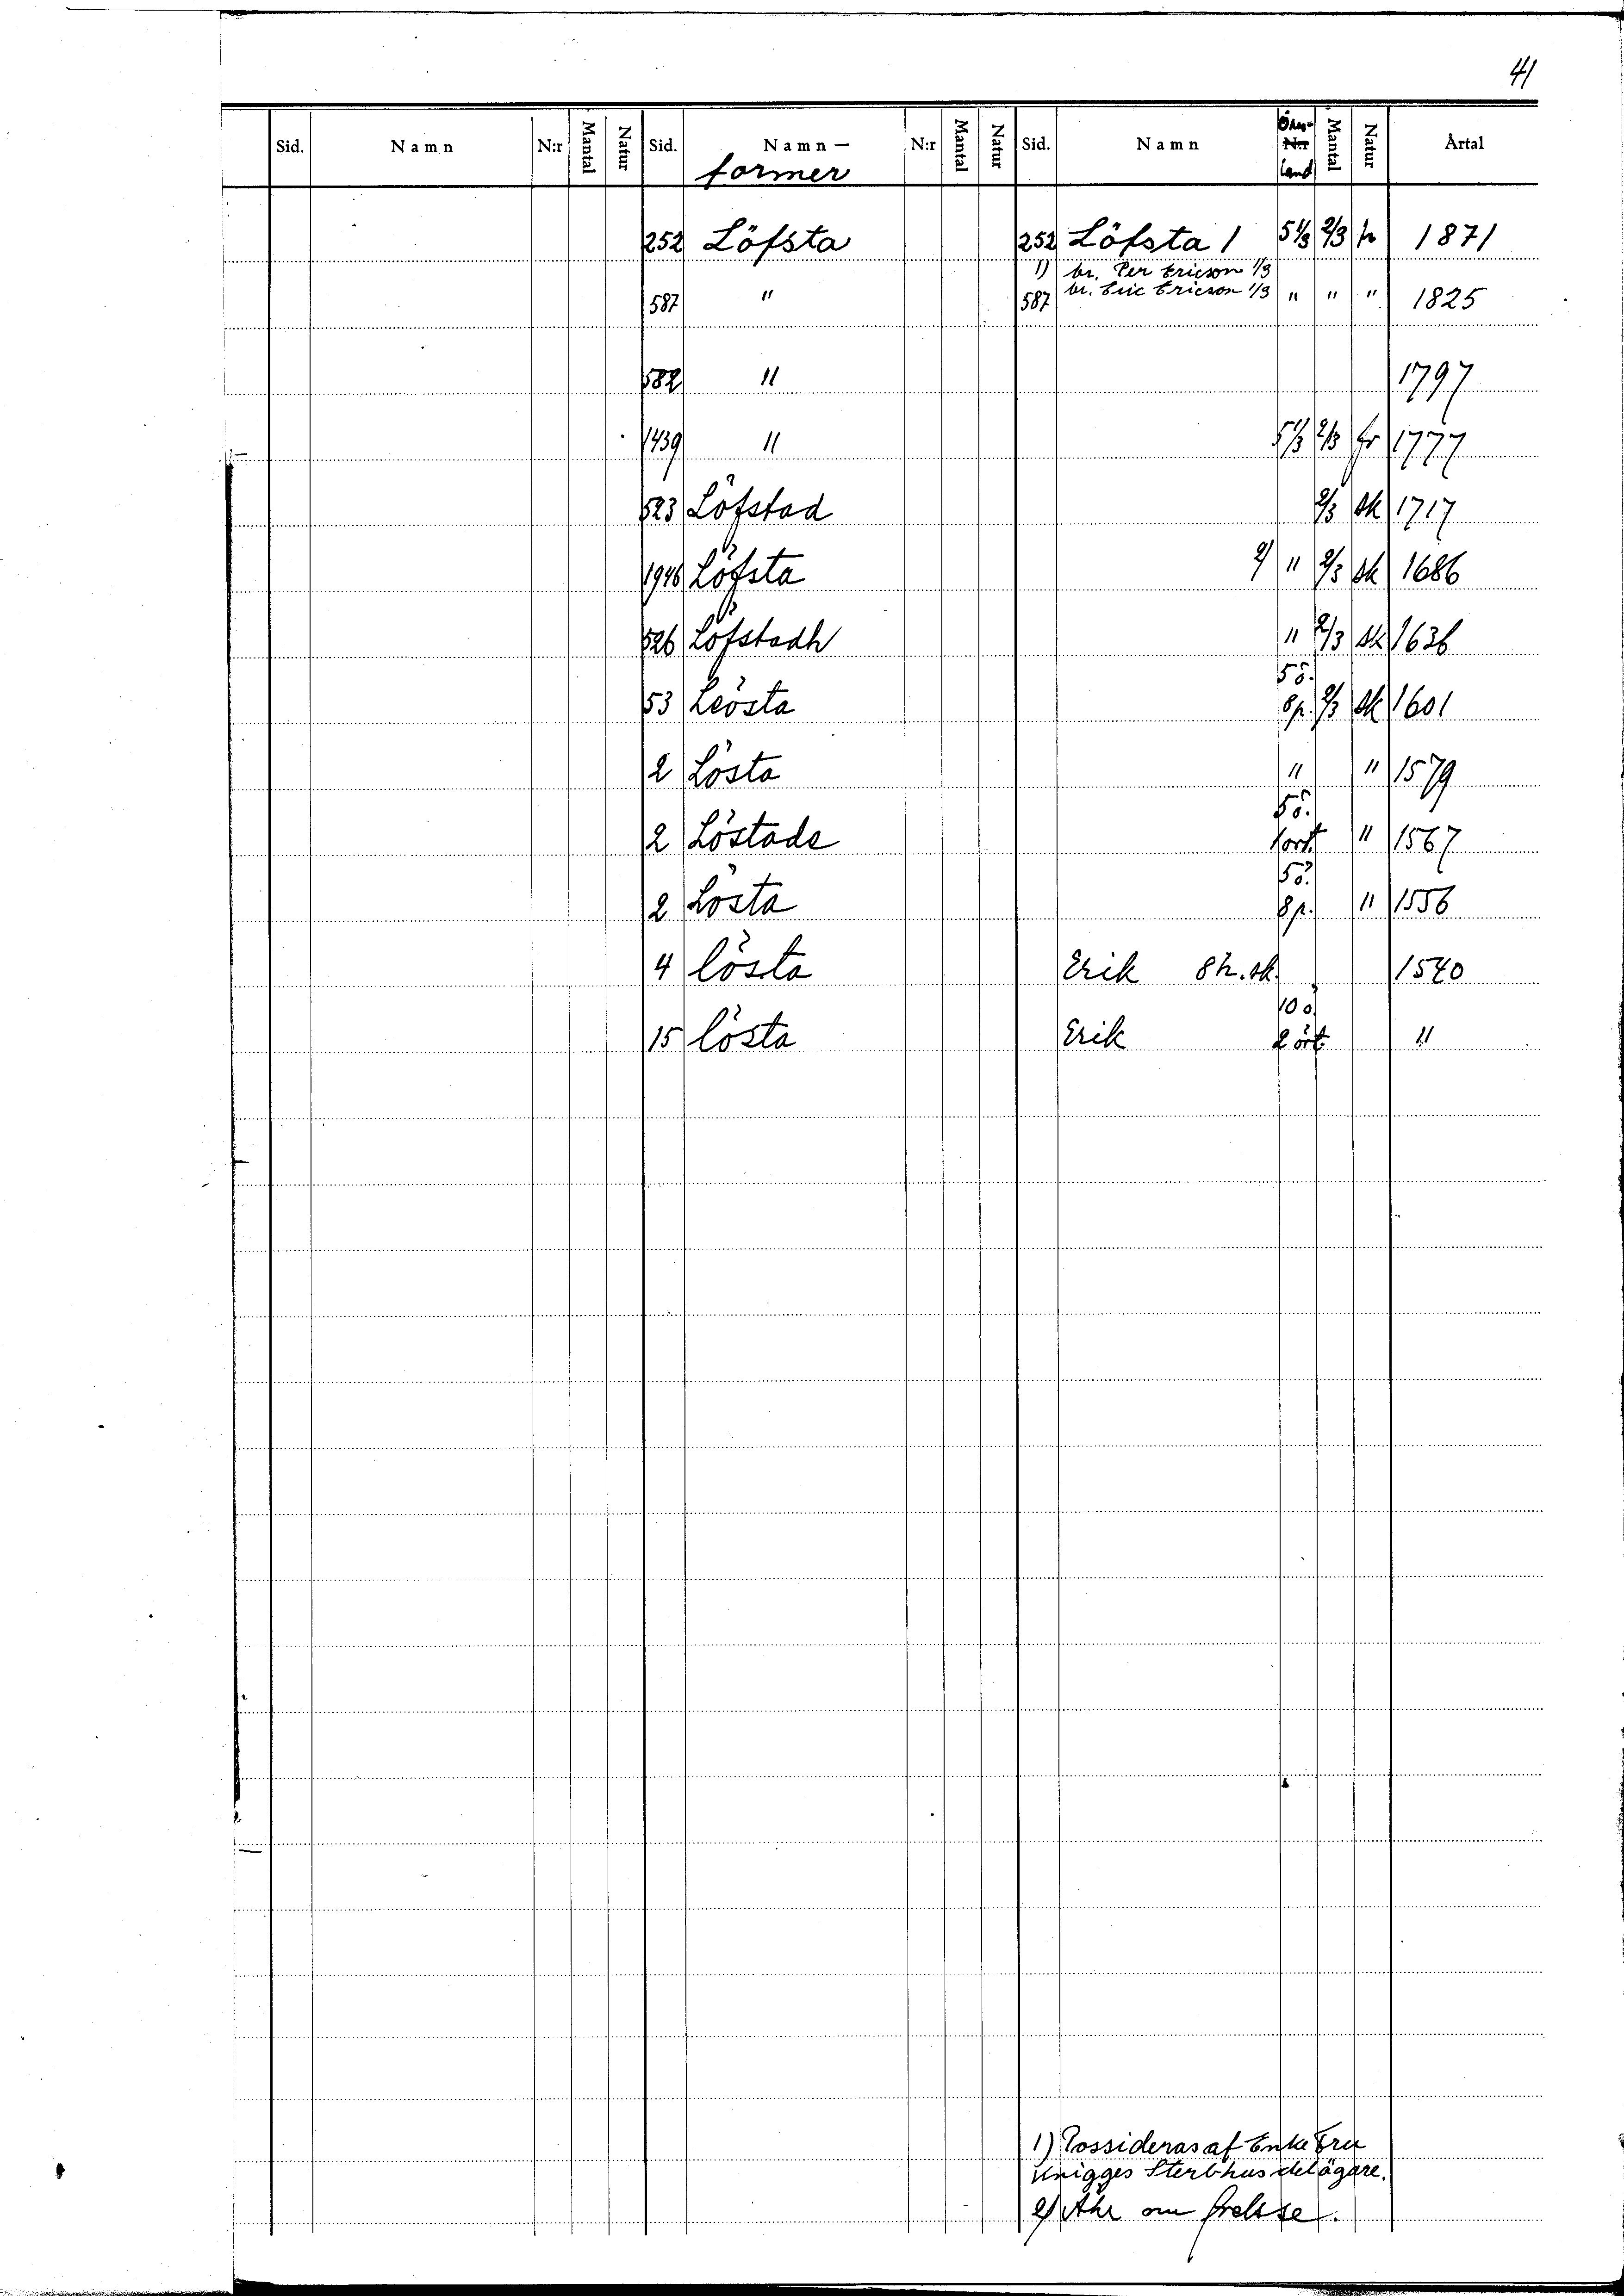 41
Sid. Namn N:r Mantal Natur Sid. Namn- N:r Mantal Natur Sid. Namn Öres- N:r land Mantal Natur Årtal
former
252 Löfsta 252 Löfsta 1 5 1/3 2/3 fr 1871
1) br. Per Ericson 1/3
587 " 587 br. Eric Ericson 1/3 " " " 1825
582 " 1797
1439 " 5 1/3 2/3 fr 1777
523 Löfstad 2/3 sk 1717
1946 Löfsta 2) " 2/3 sk 1686
526 Löfstadh " 2/3 sk 1636
5ö.
53 Leösta 8p. 2/3 sk 1601
2 Lösta " " 1579
5ö.
2 Löstade 1ort. " 1567
5ö.
2 Lösta 8p. " 1556
4 lösta Erik 8h. sk. 1540
10ö.
15 lösta Erik 2 ört. "
1) Possideras af Enke Fru
Knigges Sterbhus delägare.
2) Ähr nu frelsse.